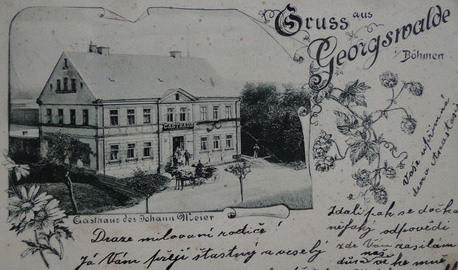 Gruss aus
Georgswalde
Böhmen
GASTHAUS
Gasthaus des Johann Meier
Draze milovaní rodiče!
Já Vám přeji šťastný a veselý
Zdali pak se dočkám
nějaký odpovědi
zde Vám zasílám
Vaše upřímná